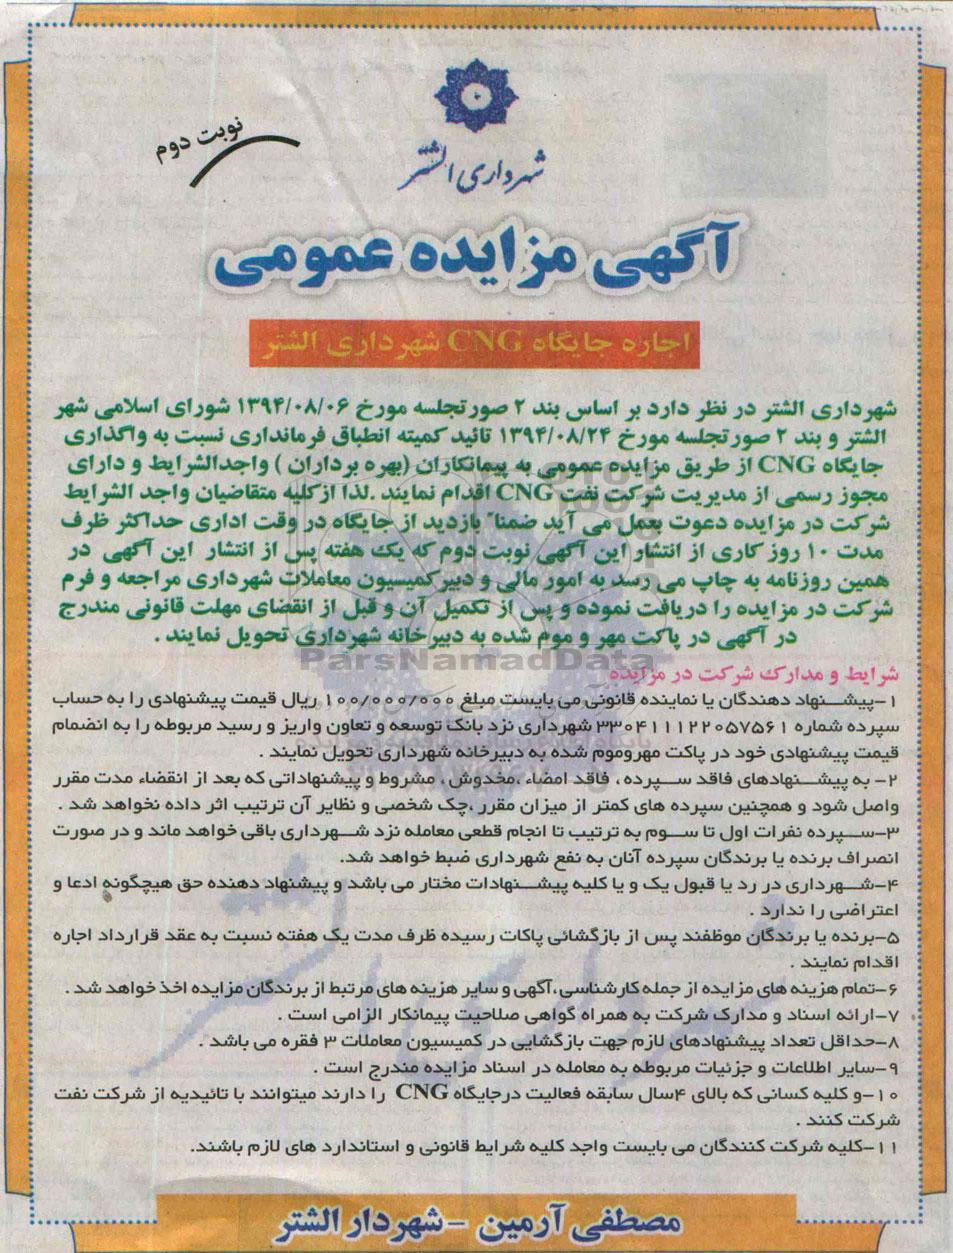 نوبت دوم
شهرداری الشتر
آگهی مزایده عمومی
اجاره جایگاه CNG شهرداری الشتر
شهرداری الشتر در نظر دارد بر اساس بند ۲ صورتجلسه مورخ ۱۳۹۴/۰۸/۰۶ شورای اسلامی شهر
الشتر و بند ۲ صورتجلسه مورخ ۱۳۹۴/۰۸/۲۴ تائید کمیته انطباق فرمانداری نسبت به واگذاری
جایگاه CNG از طریق مزایده عمومی به پیمانکاران (بهره برداران ) واجدالشرایط و دارای
مجوز رسمی از مدیریت شرکت نفت CNG اقدام نمایند .لذا ازکلیه متقاضیان واجد الشرایط
شرکت در مزایده دعوت بعمل می آید ضمناً بازدید از جایگاه در وقت اداری حداکثر ظرف
مدت ۱۰ روز کاری از انتشار این آگهی نوبت دوم که یک هفته پس از انتشار این آگهی در
همین روزنامه به چاپ می رسد به امور مالی و دبیر کمیسیون معاملات شهرداری مراجعه و فرم
شرکت در مزایده را دریافت نموده و پس از تکمیل آن و قبل از انقضای مهلت قانونی مندرج
در آگهی در پاکت مهر و موم شده به دبیرخانه شهرداری تحویل نمایند .
ParsNamadData
شرایط و مدارک شرکت در مزایده
۱-پیشنهاد دهندگان یا نماینده قانونی می بایست مبلغ ۱۰۰/۰۰۰/۰۰۰ ریال قیمت پیشنهادی را به حساب
سپرده شماره ۳۳۰۴۱۱۱۲۲۰۵۷۵۶۱ شهرداری نزد بانک توسعه و تعاون واریز و رسید مربوطه را به انضمام
قیمت پیشنهادی خود در پاکت مهروموم شده به دبیرخانه شهرداری تحویل نمایند .
۲- به پیشنهادهای فاقد سپرده ، فاقد امضاء ،مخدوش ، مشروط و پیشنهاداتی که بعد از انقضاء مدت مقرر
واصل شود و همچنین سپرده های کمتر از میزان مقرر ،چک شخصی و نظایر آن ترتیب اثر داده نخواهد شد .
۳-سپرده نفرات اول تا سوم به ترتیب تا انجام قطعی معامله نزد شهرداری باقی خواهد ماند و در صورت
انصراف برنده یا برندگان سپرده آنان به نفع شهرداری ضبط خواهد شد.
۴-شهرداری در رد یا قبول یک و یا کلیه پیشنهادات مختار می باشد و پیشنهاد دهنده حق هیچگونه ادعا و
اعتراضی را ندارد .
۵-برنده یا برندگان موظفند پس از بازگشائی پاکات رسیده ظرف مدت یک هفته نسبت به عقد قرارداد اجاره
اقدام نمایند .
۶-تمام هزینه های مزایده از جمله کارشناسی،آگهی و سایر هزینه های مرتبط از برندگان مزایده اخذ خواهد شد .
۷-ارائه اسناد و مدارک شرکت به همراه گواهی صلاحیت پیمانکار الزامی است .
۸-حداقل تعداد پیشنهادهای لازم جهت بازگشایی در کمیسیون معاملات ۳ فقره می باشد .
۹-سایر اطلاعات و جزئیات مربوطه به معامله در اسناد مزایده مندرج است .
۱۰-و کلیه کسانی که بالای ۴سال سابقه فعالیت درجایگاه CNG را دارند میتوانند با تائیدیه از شرکت نفت
شرکت کنند .
۱۱-کلیه شرکت کنندگان می بایست واجد کلیه شرایط قانونی و استاندارد های لازم باشند.
مصطفی آرمین - شهردار الشتر